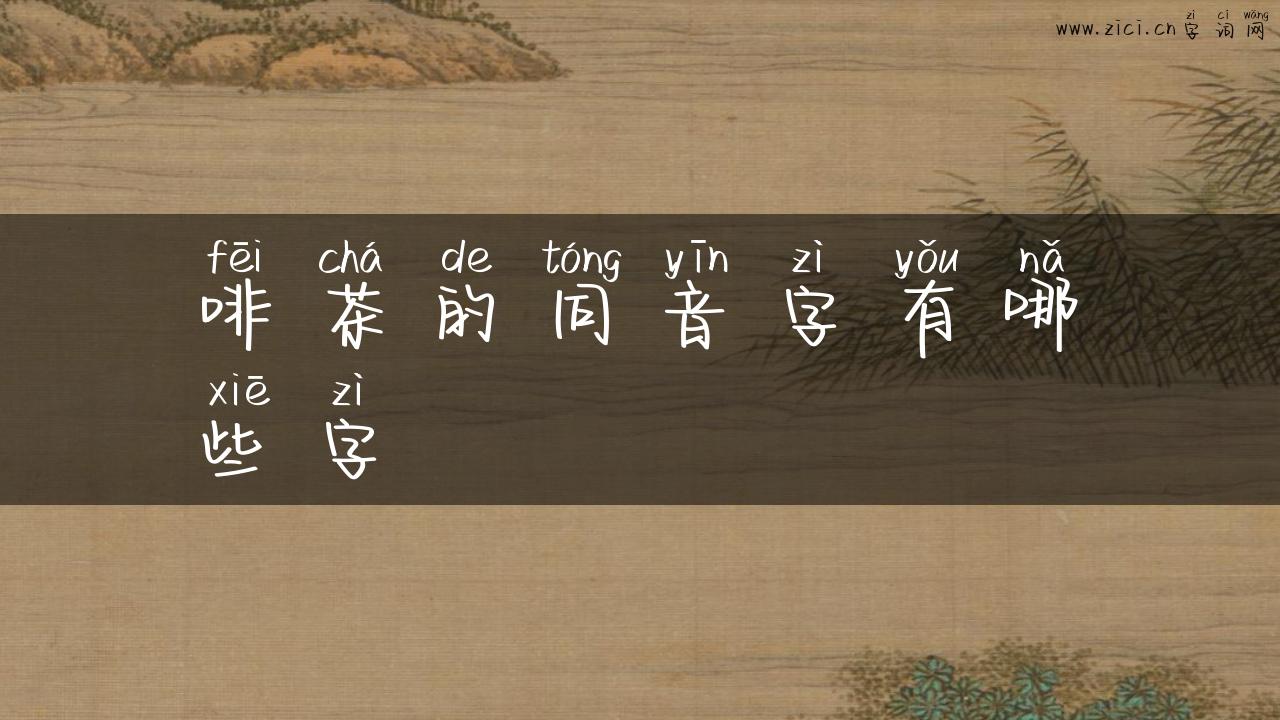 zì cí wǎng
www.zici.cn字词网
fēi chá de tóng yīn zì yǒu nǎ
啡茶的同音字有哪
xiē zì
些字